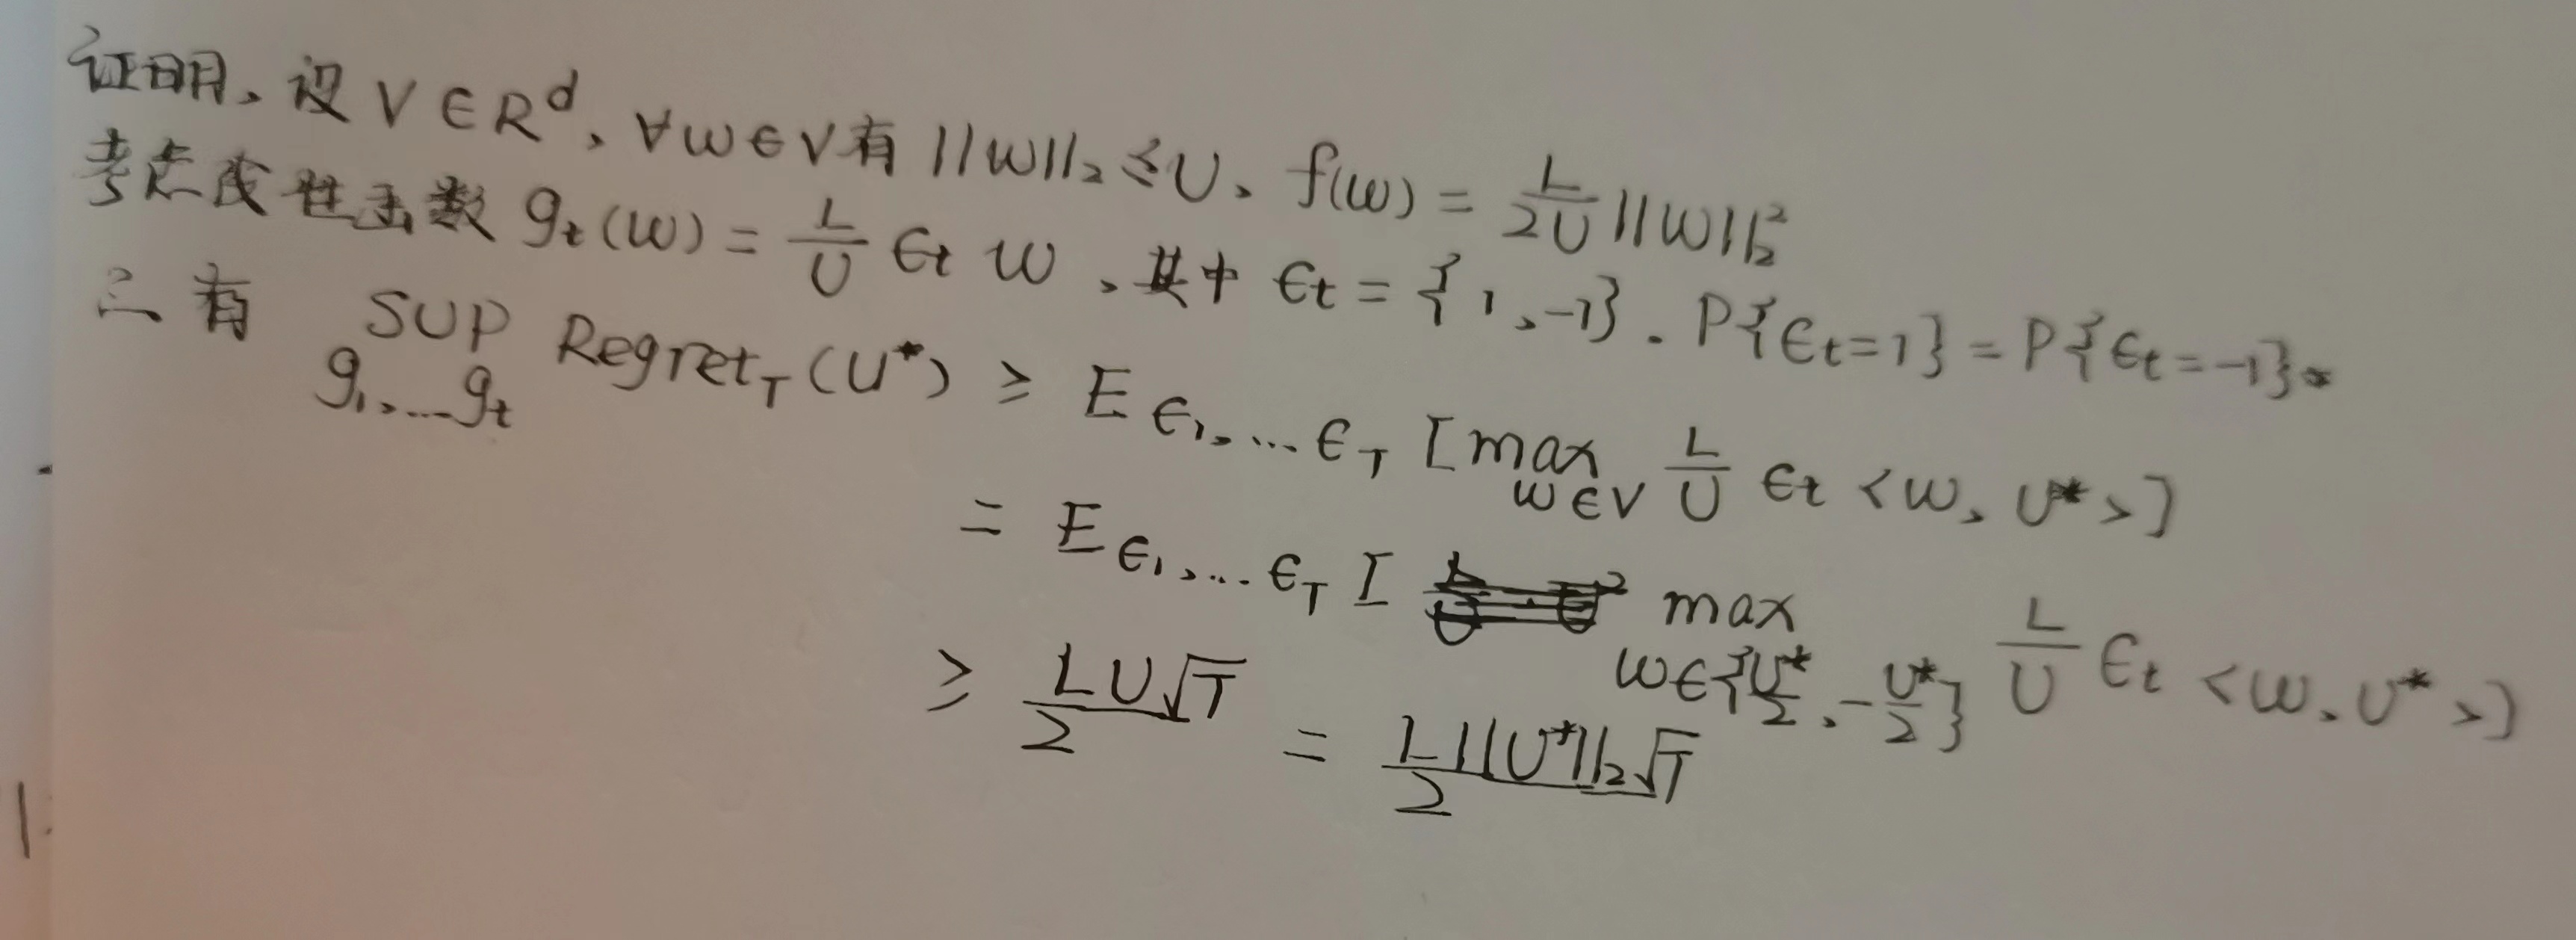 证明、设 V∈R^d、∀w∈V有 ||w||₂≤U、f(w) = L/2U ||w||₂²
考虑线性函数 g_t(w) = L/U ϵ_t w、其中 ϵ_t = {1、-1}. P{ϵ_t=1} = P{ϵ_t=-1}.
∴有 SUP_{g_1、...g_t} Regret_T(U*) ≥ E_{ϵ_1、...ϵ_T} [max_{w∈V} L/U ϵ_t <w、U*>]
= E_{ϵ_1、...ϵ_T} [ max_{w∈{U*/2、-U*/2}} L/U ϵ_t <w、U*>]
≥ LU√T/2 = L||U*||₂√T/2